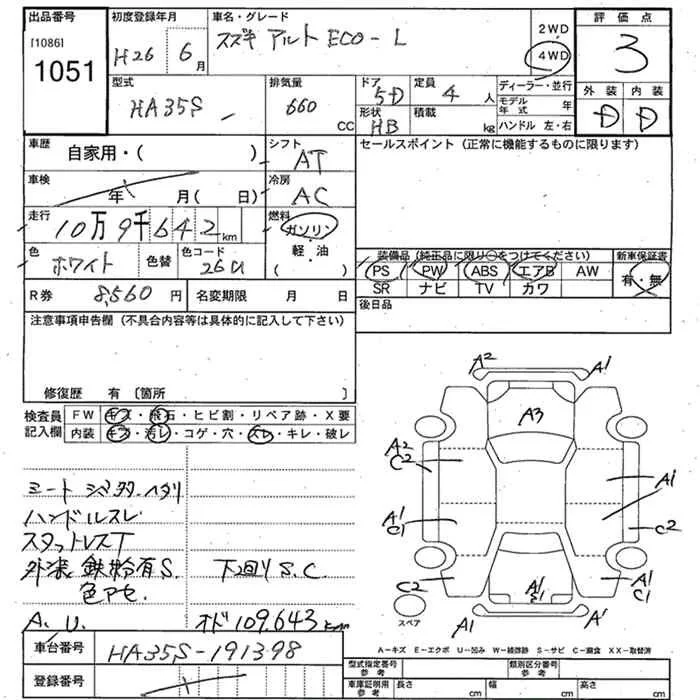 出品番号
[1086]
1051
初度登録年月
H26 6月
車名・グレード
スズキ アルト ECO-L
2WD
4WD
評価点
3
外装 内装
D D
型式
HA35S
排気量
660 CC
ドア
5D
形状
HB
定員
4人
積載
kg
ディーラー・並行
モデル年式 年
ハンドル 左・右
車歴
自家用・( )
シフト
AT
セールスポイント(正常に機能するものに限ります)
車検
年 月(日)
冷房
AC
走行
10万9千642km
燃料
ガソリン
軽・油
( )
色
ホワイト
色替
色コード
26U
装備品(純正品に限り○をつけてください)
PS PW ABS エアB AW
SR ナビ TV カワ
新車保証書
有・無
R券 8,560円
名変期限 月 日
後日品
注意事項申告欄(不具合内容等は具体的に記入して下さい)
修復歴 有 〔箇所 〕
検査員記入欄
FW キズ・飛石・ヒビ割・リペア跡・X要
内装 キズ・汚レ・コゲ・穴・スレ・キレ・破レ
シート シミ多.ヘタリ
ハンドルスレ
スタットレスT
外装 鉄粉有S. 下回りS.C.
色アセ.
A.U. オド109.643
車台番号 HA35S-191398
登録番号
A2 A1
A3
A2
C2
A1
A1
C1
C2
C2
A1
C1
A1
C1
A1 A1
スペア
A-キズ E-エクボ U-凹み W-補修跡 S-サビ C-腐食 XX-取替済
型式指定番号 参考
類別区分番号 参考
車庫証明用 参考
長さ cm 幅 cm 高さ cm